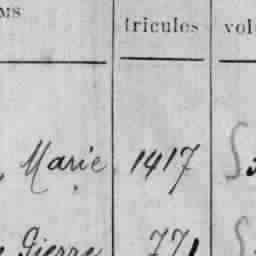 MS tricules vol
, Marie 1417
Pierre 771